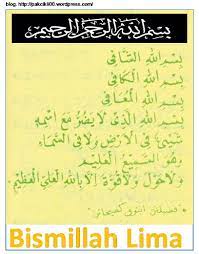 blog. http://pakcik800.wordpress.com/
بسم الله الرحمن الرحيم
بِسْمِ اللهِ الشَّافِى
بِسْمِ اللهِ الْكَافِى
بِسْمِ اللهِ الْمُعَافِى
بِسْمِ اللهِ الَّذِى لَا يَضُرُّ مَعَ اسْمِهِ
شَيْئٌ فِى الْاَرْضِ وَلَا فِى السَّمَاءِ
وَهُوَ السَّمِيْعُ الْعَلِيْمُ
وَلَاحَوْلَ وَلَاقُوَّةَ اِلَّا بِاللهِ الْعَلِيِّ الْعَظِيْمِ
Bismillah Lima